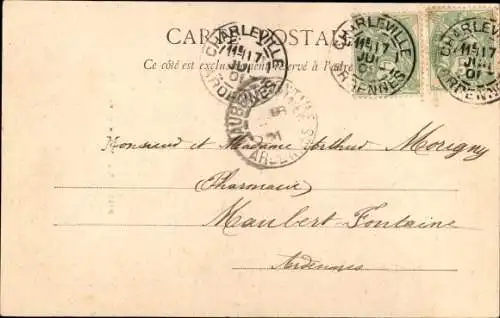 CARTE POSTALE
Ce côté est exclusivement réservé à l'adresse
CHARLEVILLE
11E /17
JUI
01
ARDENNES
CHARLEVILLE
11E /17
JUI
01
ARDENNES
CHARLEVILLE
11E /17
JUI
01
ARDENNES
Monsieur et Madame Arthur Morigny
Pharmacie
Maubert-Fontaine
Ardennes